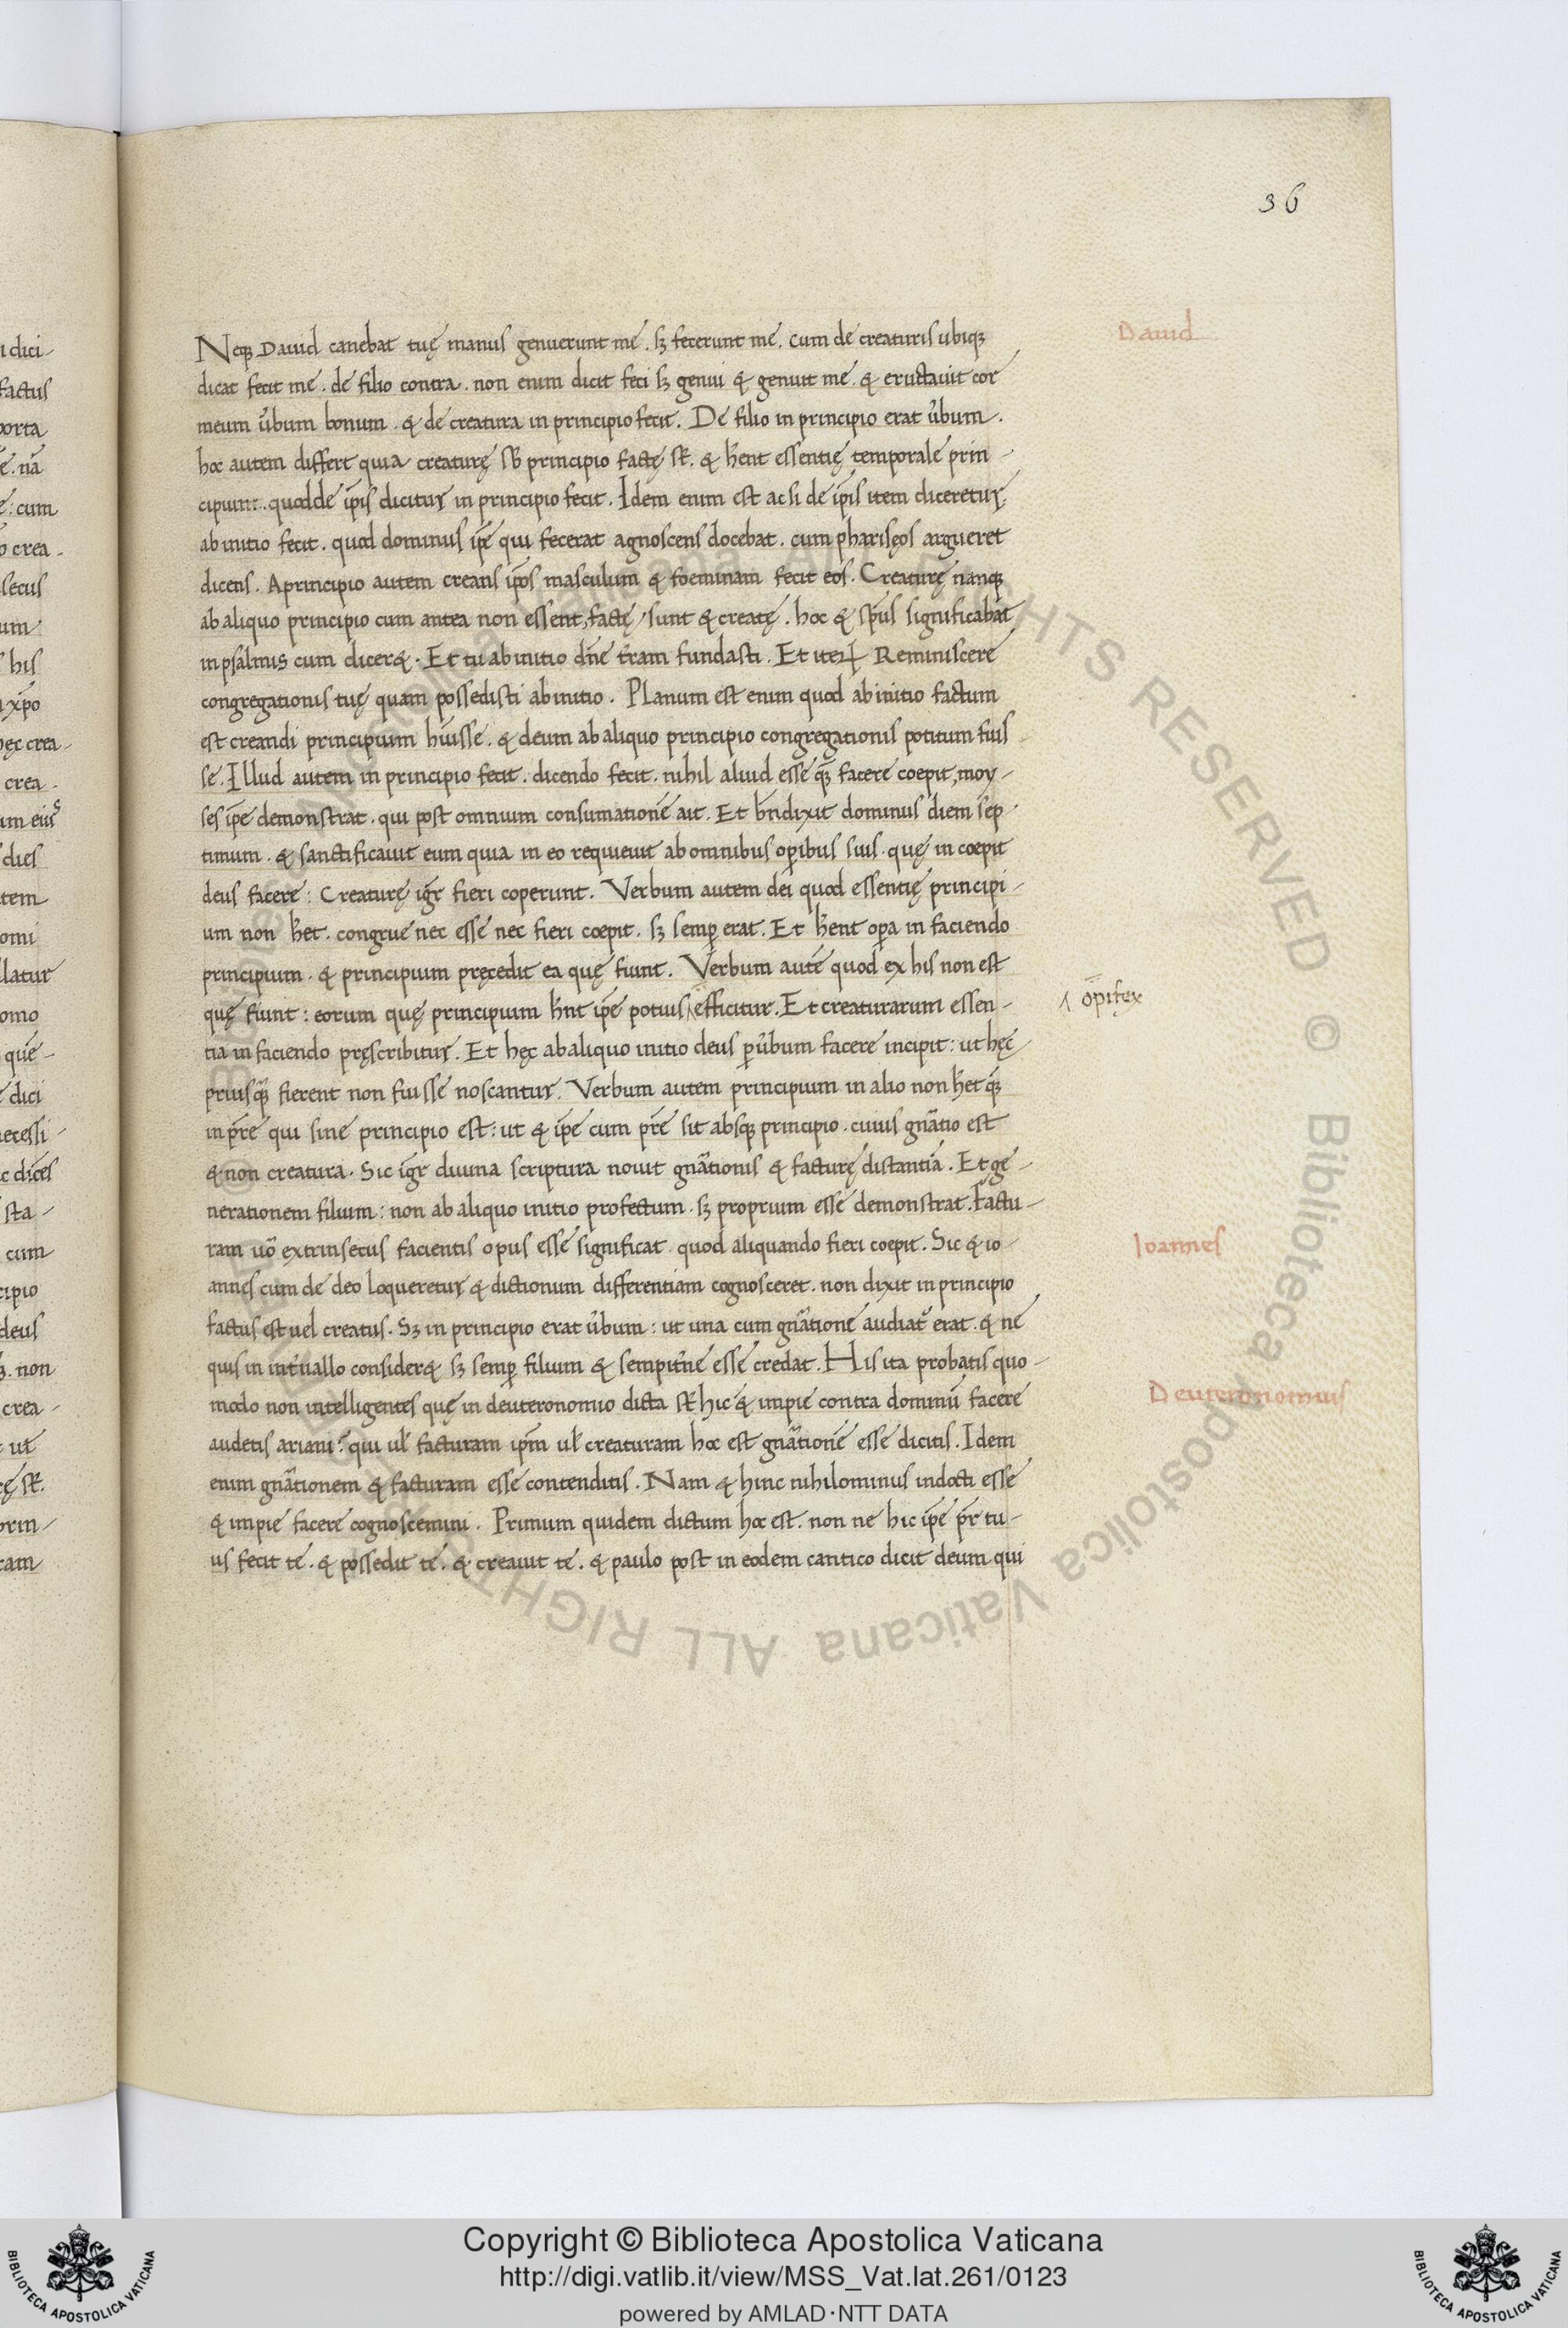 36
Neq; Dauid canebat tuę manus genuerunt me . sꝫ fecerunt me. cum de creaturis ubiq;
dicat fecit me . de filio contra . non enim dicit feci sꝫ genui & genuit me . & eructauit cor
meum ūbum bonum . & de creatura in principio fecit . De filio in principio erat ūbum .
hoc autem differt quia creaturę sb principio factę st̄ . & hn̄t essentię temporale prin-
cipium . quod de ip̄is dicitur in principio fecit . Idem enim est ac si de ip̄is item diceretur
ab initio fecit . quod dominus ip̄e qui fecerat agnoscens docebat . cum pharisęos argueret
dicens . A principio autem creans ip̄os masculum & foeminam fecit eos . Creaturę nanq;
ab aliquo principio cum antea non essent, factę sunt & creatę . hoc & sp̄us significabat
in psalmis cum diceret . Et tu ab initio dn̄e t̄ram fundasti . Et iteꝝ Reminiscere
congregationis tuę quam possedisti ab initio . Planum est enim quod ab initio factum
est creandi principium h̄uisse . & deum ab aliquo principio congregationis potitum fuis
se . Illud autem in principio fecit . dicendo fecit . nihil aliud esse q̄ꝫ facere coepit, moy-
ses ip̄e demonstrat . qui post omnium consumationē ait . Et bn̄dixit dominus diem sep-
timum . & sanctificauit eum quia in eo requieuit ab omnibus op̄ibus suis . quę in coepit
deus facere : Creaturę igr̄ fieri coperunt . Verbum autem dei quod essentię principi-
um non h̄et . congrue nec esse nec fieri coepit . sꝫ semp̄ erat . Et hn̄t op̄a in faciendo
principium . & principium pręcedit ea quę fiunt . Verbum autē quod ex his non est
quę fiunt : eorum quę principium hn̄t ip̄e potius ^ efficitur . Et creaturarum essen-
^ op̄ifex
tia in faciendo pręscribitur . Et hęc ab aliquo initio deus p̄ ūbum facere incipit : ut hęc
priusq̄ꝫ fierent non fuisse noscantur . Verbum autem principium in alio non h̄et q̄ꝫ
in pr̄e qui sine principio est : ut & ip̄e cum pr̄e sit absq; principio . cuius gn̄atio est
& non creatura . Sic igr̄ diuina scriptura nouit gn̄ationis & facturę distantiā . Et ge-
nerationem filium : non ab aliquo initio profectum . sꝫ proprium esse demonstrat . Factu-
ram uō extrinsecus facientis opus esse significat . quod aliquando fieri coepit . Sic & io-
annes cum de deo loqueretur & dictionum differentiam cognosceret . non dixit in principio
factus est uel creatus . Sꝫ in principio erat ūbum : ut una cum gn̄atione audiat̄ erat . & ne
quis in int̄uallo consideret sꝫ semp̄ filium & sempit̄ne esse credat . His ita probatis quo-
modo non intelligentes quę in deuteronomio dicta st̄ hic & impie contra dominū facere
audetis ariani ? qui ul̄ facturam ip̄m ul̄ creaturam hoc est gn̄ationē esse dicitis . Idem
enim gn̄ationem & facturam esse contenditis . Nam & hinc nihilominus indocti esse
& impie facere cognoscemini . Primum quidem dictum hoc est . non ne hic ip̄e pr̄ tu-
us fecit te . & possedit te . & creauit te . & paulo post in eodem cantico dicit deum qui
Dauid
Ioannes
Deuteronomius
Copyright © Biblioteca Apostolica Vaticana
http://digi.vatlib.it/view/MSS_Vat.lat.261/0123
powered by AMLAD·NTT DATA